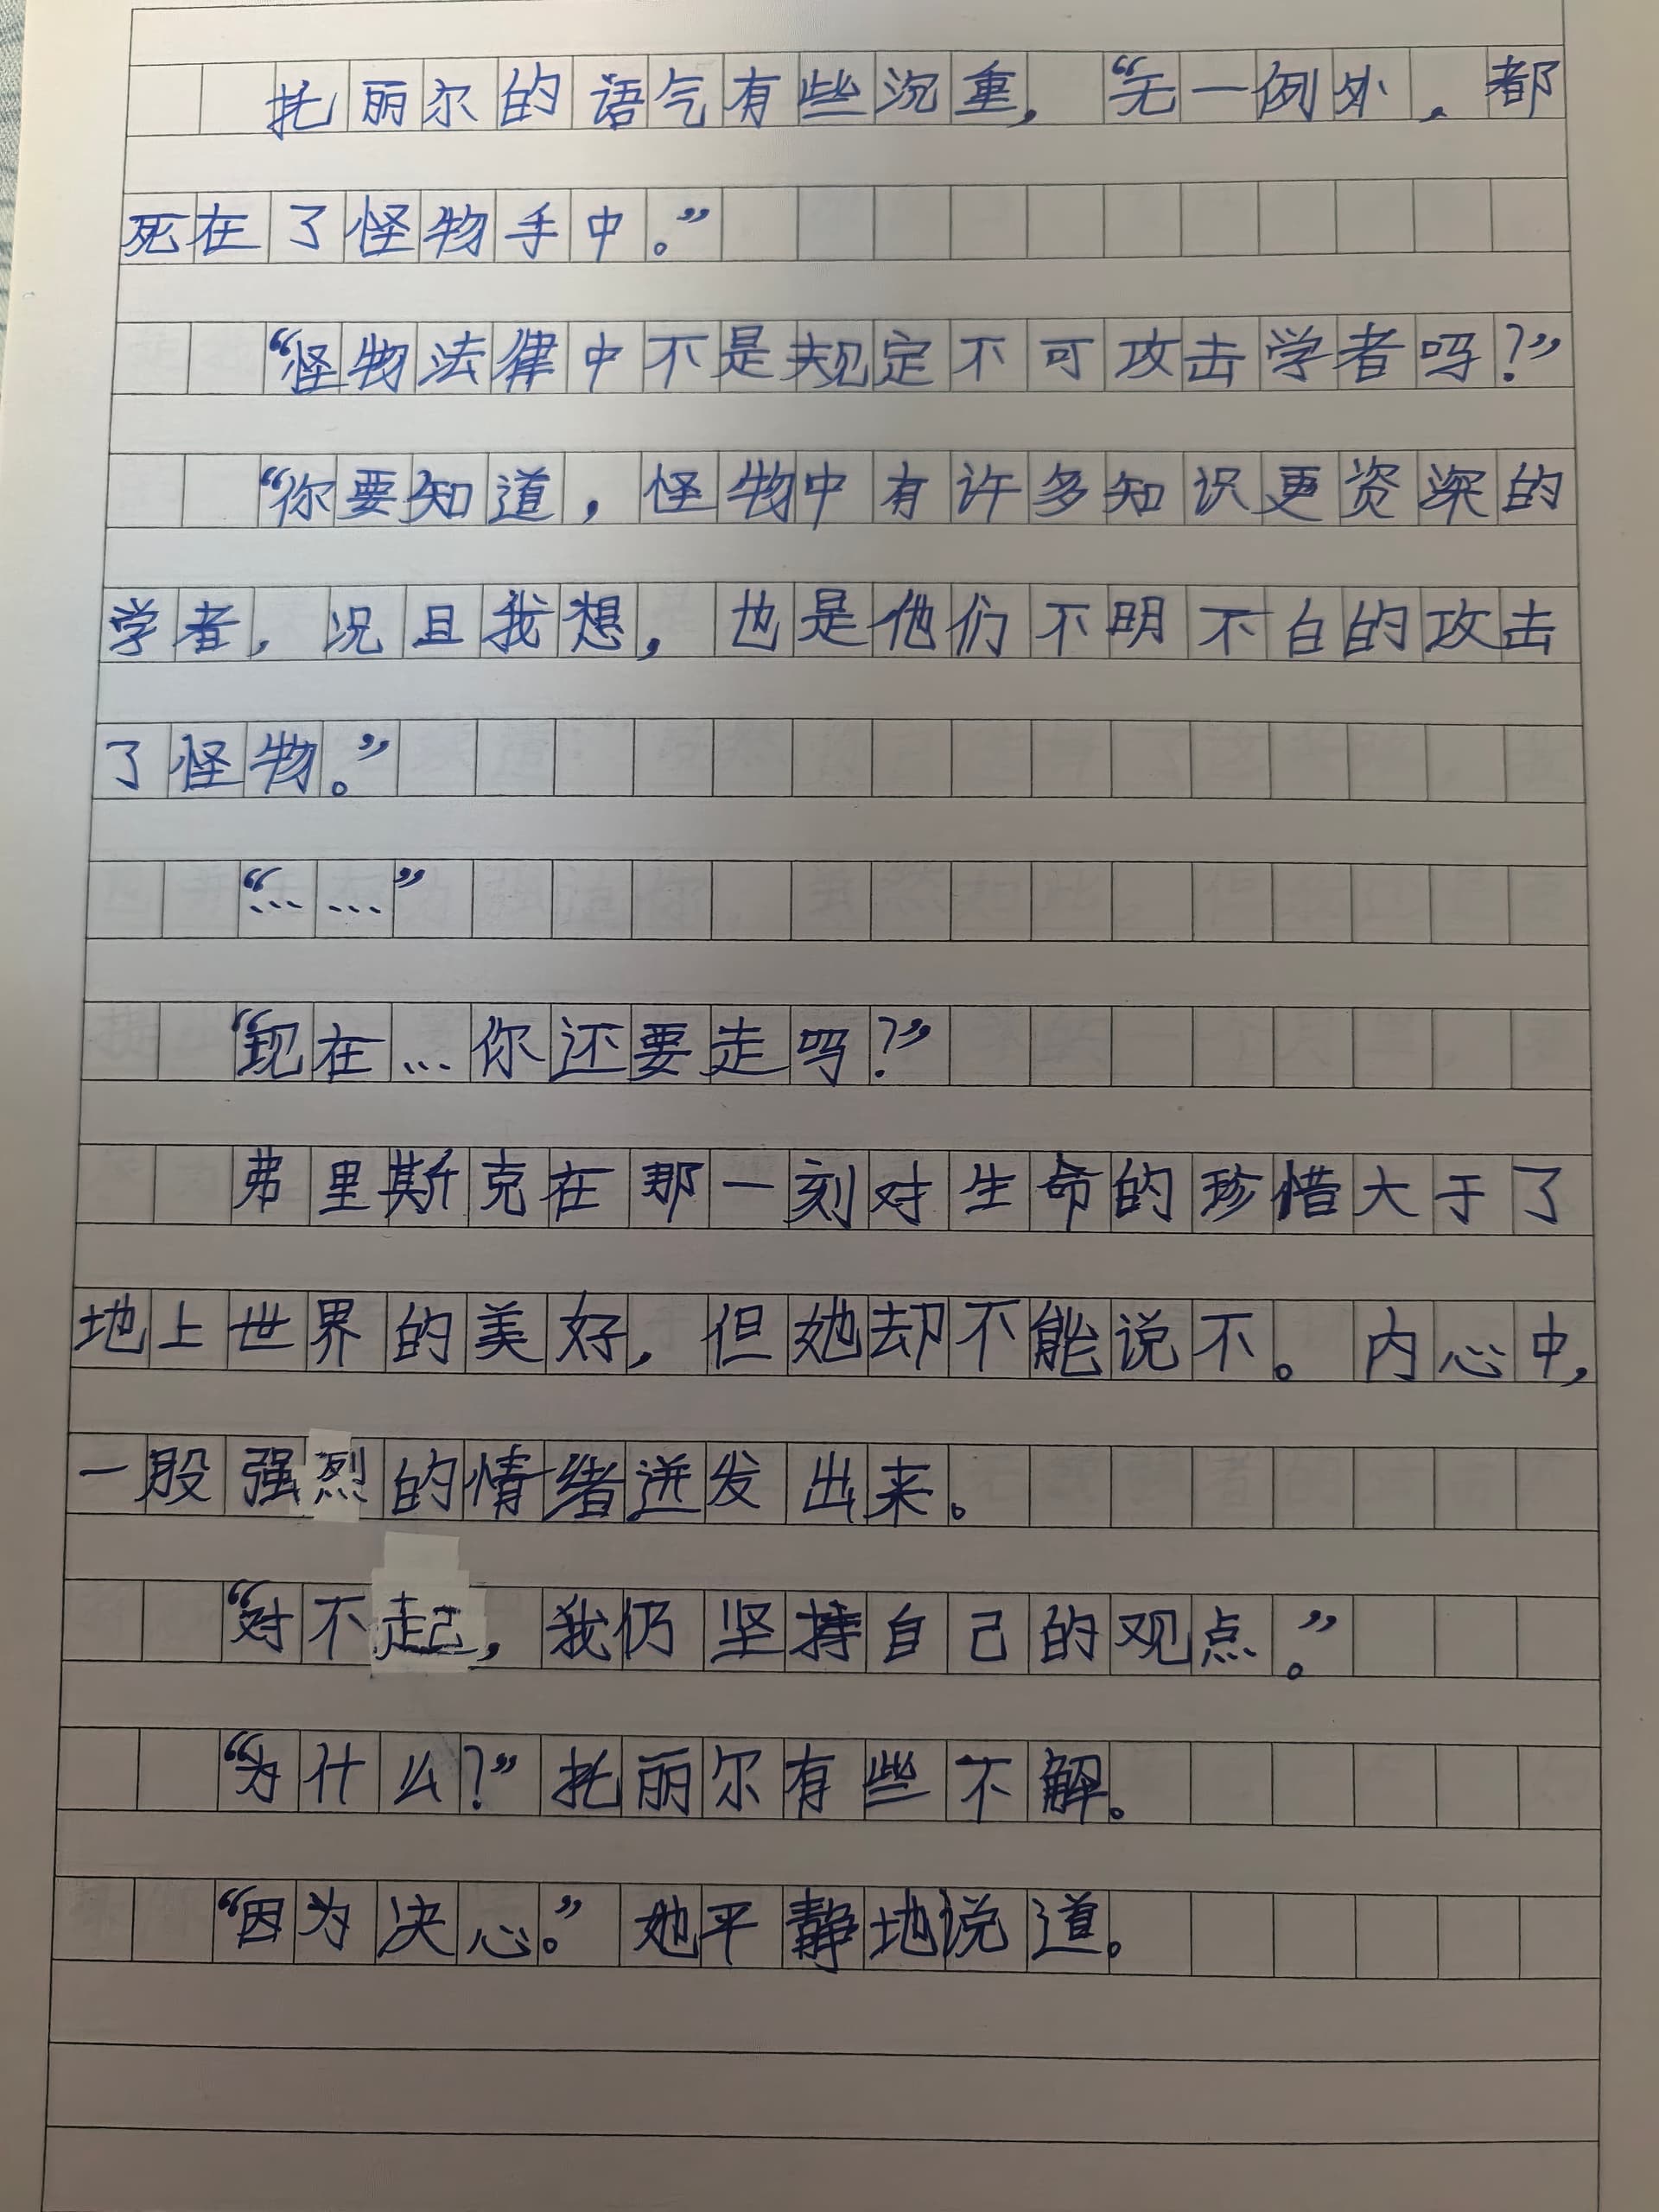 托丽尔的语气有些沉重，“无一例外，都
死在了怪物手中。”
“怪物法律中不是规定不可攻击学者吗？”
“你要知道，怪物中有许多知识更资深的
学者，况且我想，也是他们不明不白的攻击
了怪物。”
“……”
“现在…你还要走吗？”
弗里斯克在那一刻对生命的珍惜大于了
地上世界的美好，但她却不能说不。内心中，
一股强烈的情绪迸发出来。
“对不起，我仍坚持自己的观点。”
“为什么？”托丽尔有些不解。
“因为决心。”她平静地说道。